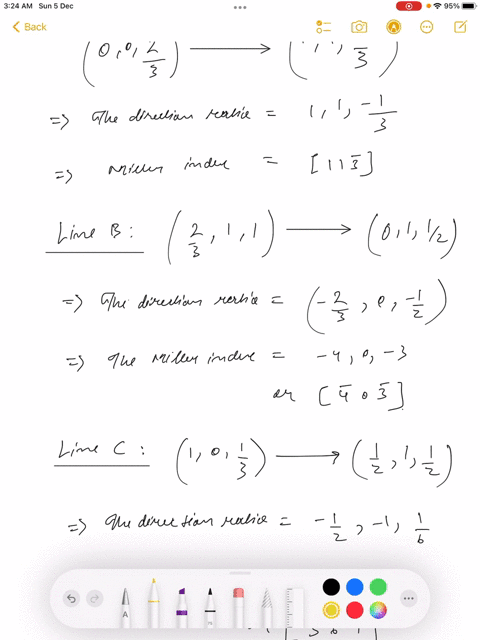 3:24 AM Sun 5 Dec 95%
Back
(0, 0, 2/3) ⟶ 3)
=> The direction ratio = 1, 1, -1/3
=> Miller index = [1 1 3̄]
Line B: (2/3, 1, 1) ⟶ (0, 1, 1/2)
=> The direction ratio = (-2/3, 0, -1/2)
=> The Miller index = -4, 0, -3
or [4̄ 0 3̄]
Line C: (1, 0, 1/3) ⟶ (1/2, 1, 1/2)
=> The direction ratio = -1/2, -1, 1/6